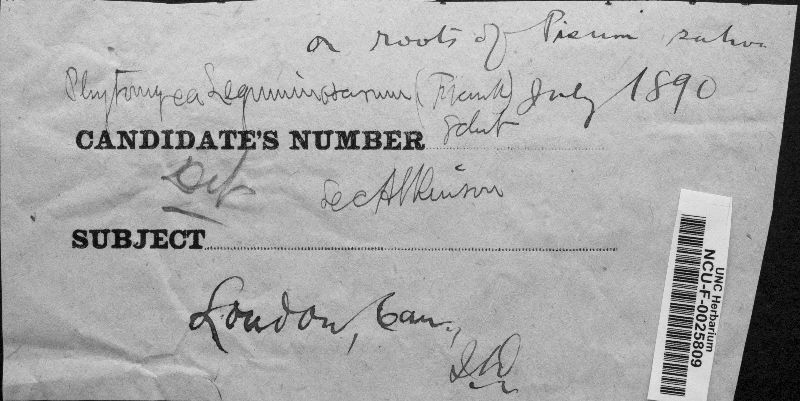 on roots of Pisum sativa
Phytomyxa Leguminosarum (Frank) July 1890
CANDIDATE'S NUMBER
Det
sec Atkinson
SUBJECT
London, Can.,
UNC Herbarium
NCU-F-0025809